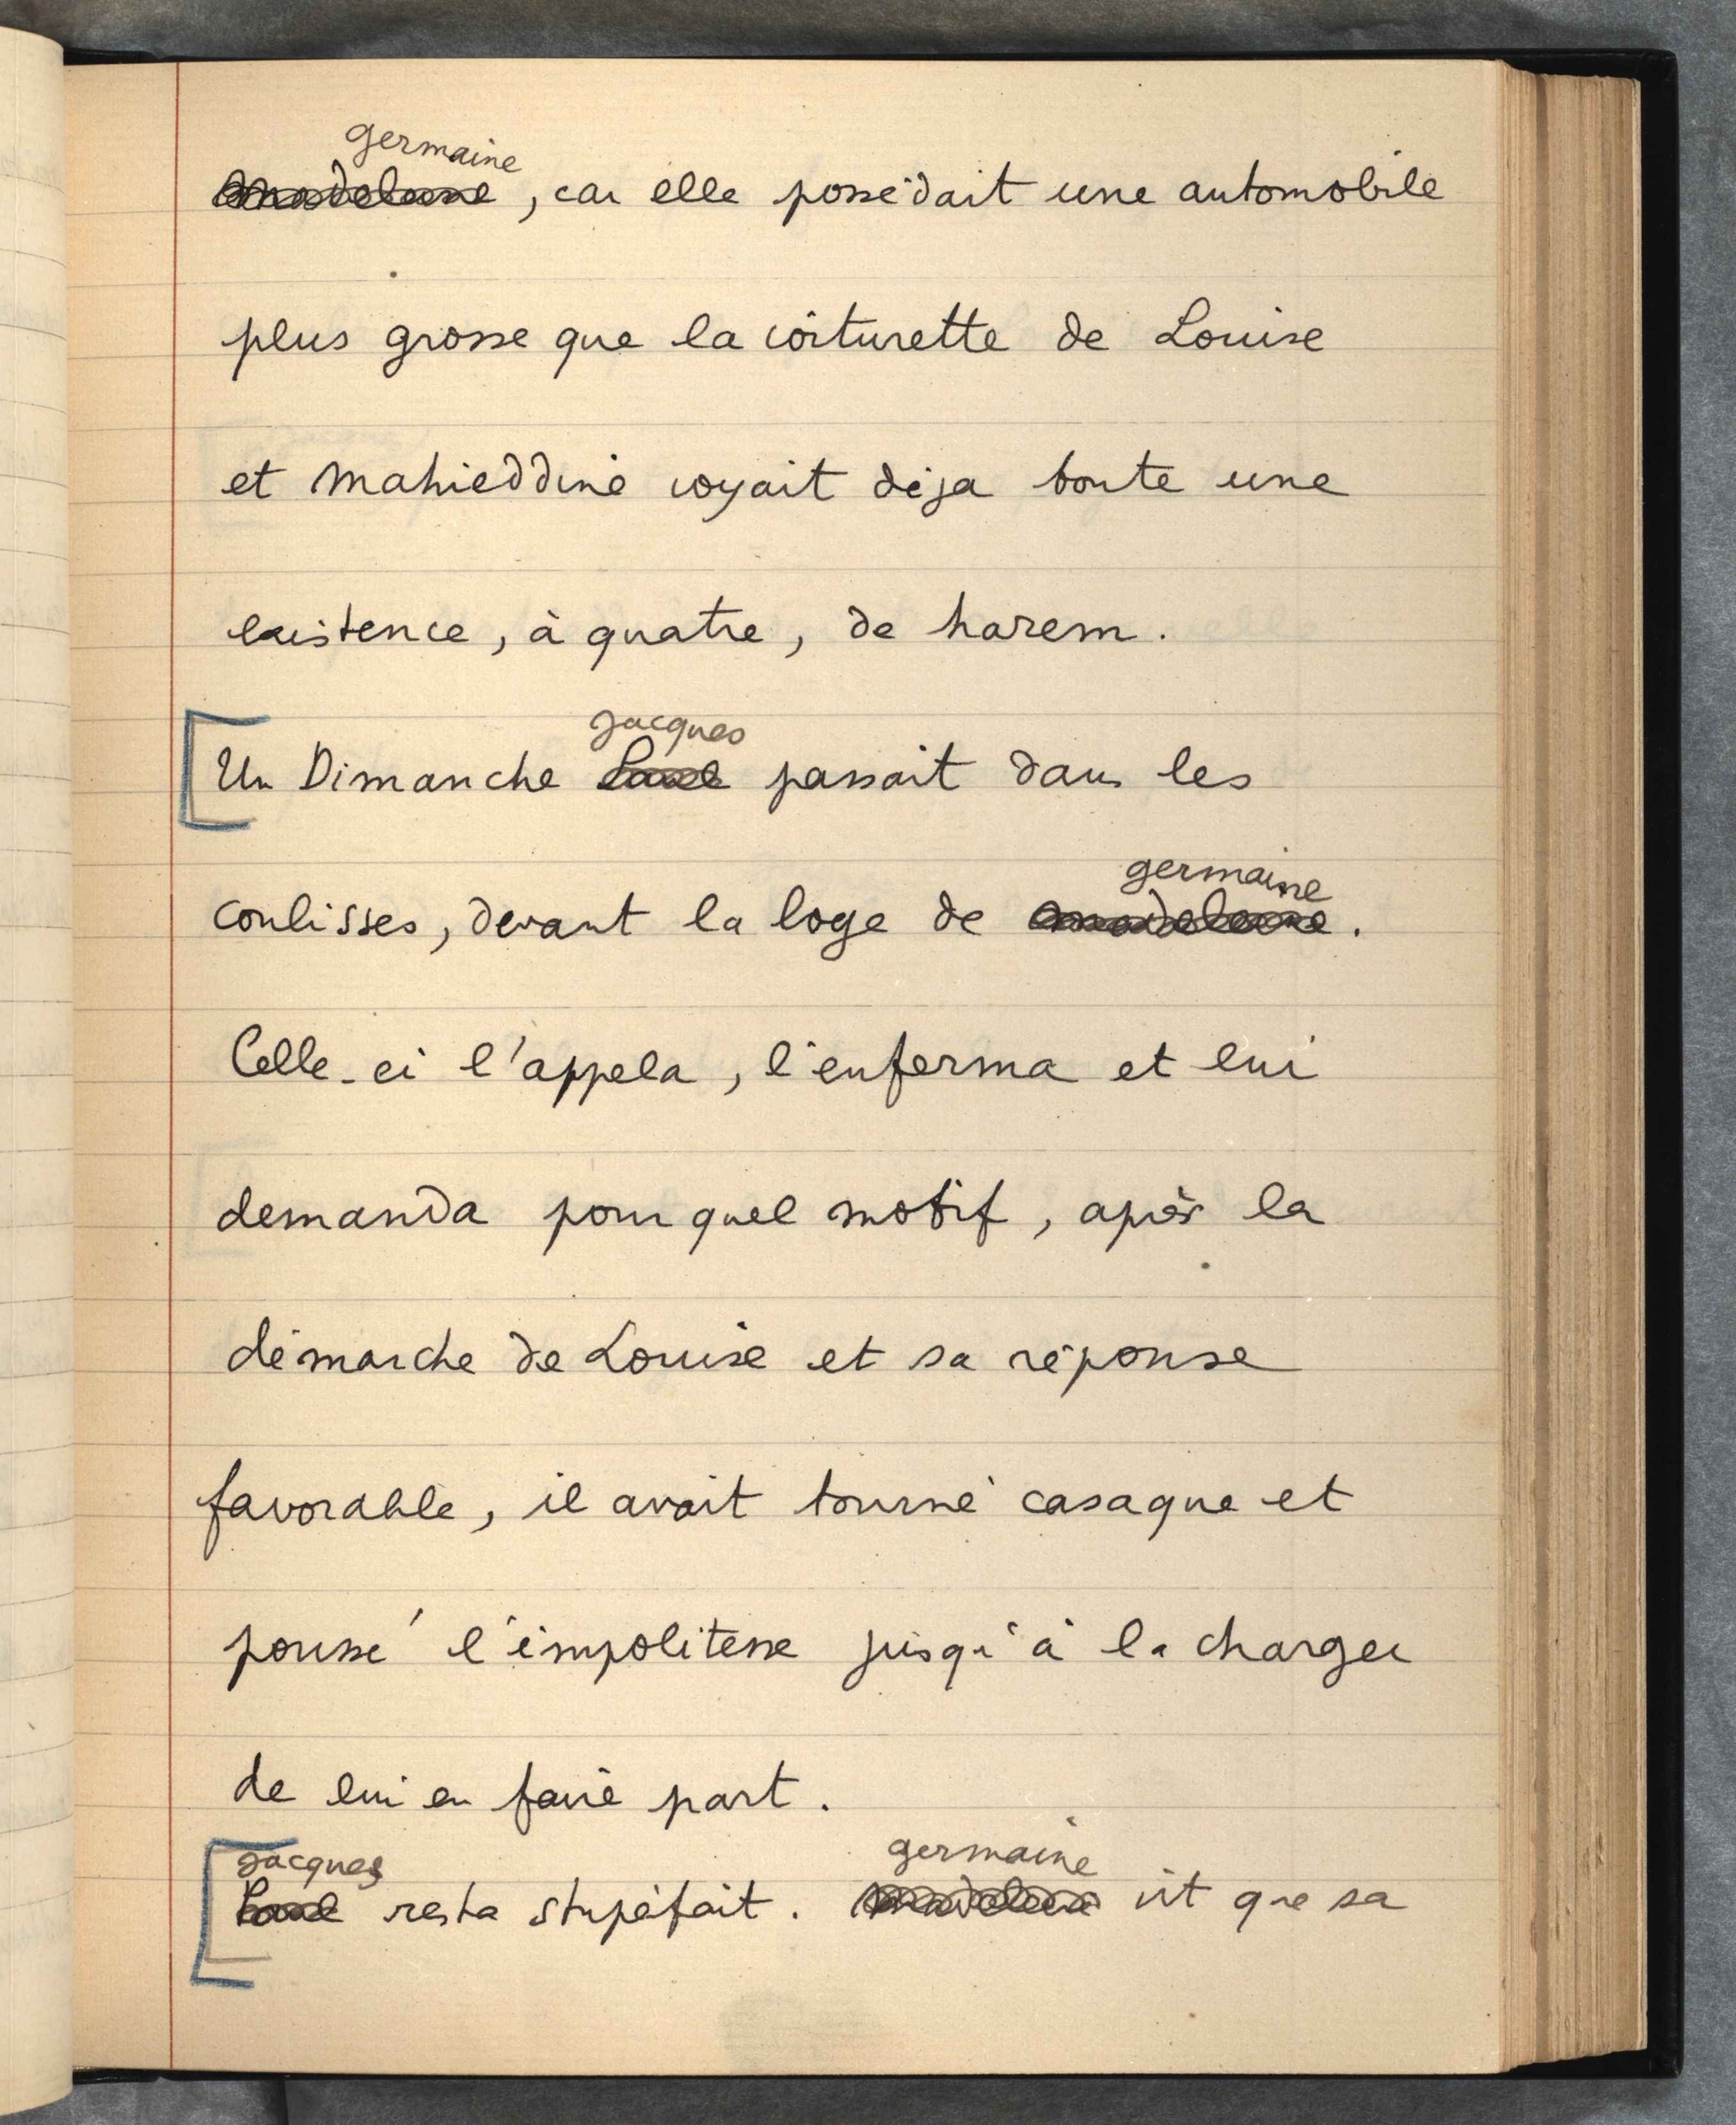 germaine
madeleine, car elle possédait une automobile
plus grosse que la voiturette de Louise
et Mahieddine voyait déja toute une
existence, à quatre, de harem.
Jacques
Un Dimanche Paul passait dans les
germaine
coulisses, devant la loge de madeleine.
Celle-ci l'appela, l'enferma et lui
demanda pour quel motif, après la
démarche de Louise et sa réponse
favorable, il avait tourné casaque et
poussé l'impolitesse jusqu'à la charger
de lui en faire part.
Jacques germaine
Paul resta stupéfait. Madeleine vit que sa